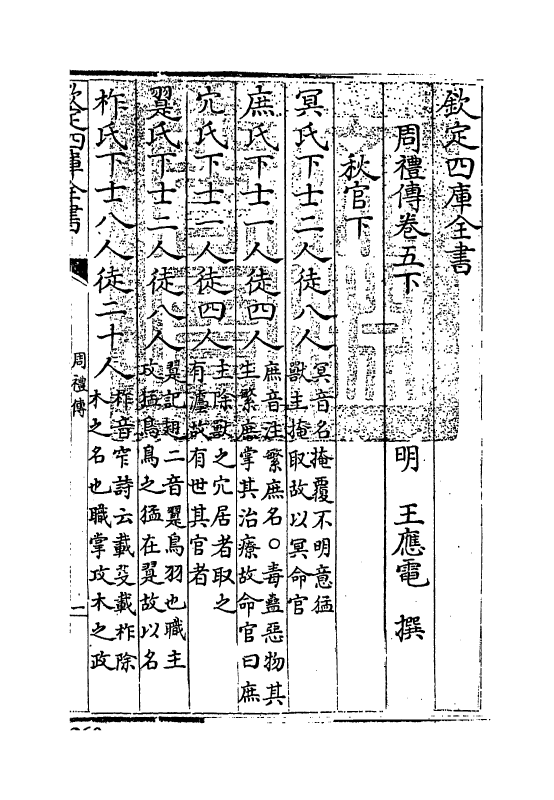 欽定四庫全書
周禮傳卷五下
明 王應電 撰
秋官下
冥氏下士二人徒八人冥音名掩覆不明意猛
獸主掩取故以冥命官
庶氏下士一人徒四人庶音注繁庶名○毒蠱惡物其
生繁庶掌其治療故命官曰庶
穴氏下士一人徒四人主除獸之穴居者取之
有灋故有世其官者
翨氏下士二人徒八人翨記翅二音翨鳥羽也職主
攻猛鳥鳥之猛在翨故以名
柞氏下士八人徒二十人柞音窄詩云載芟載柞除
木之名也職掌攻木之政
欽定四庫全書
周禮傳
一